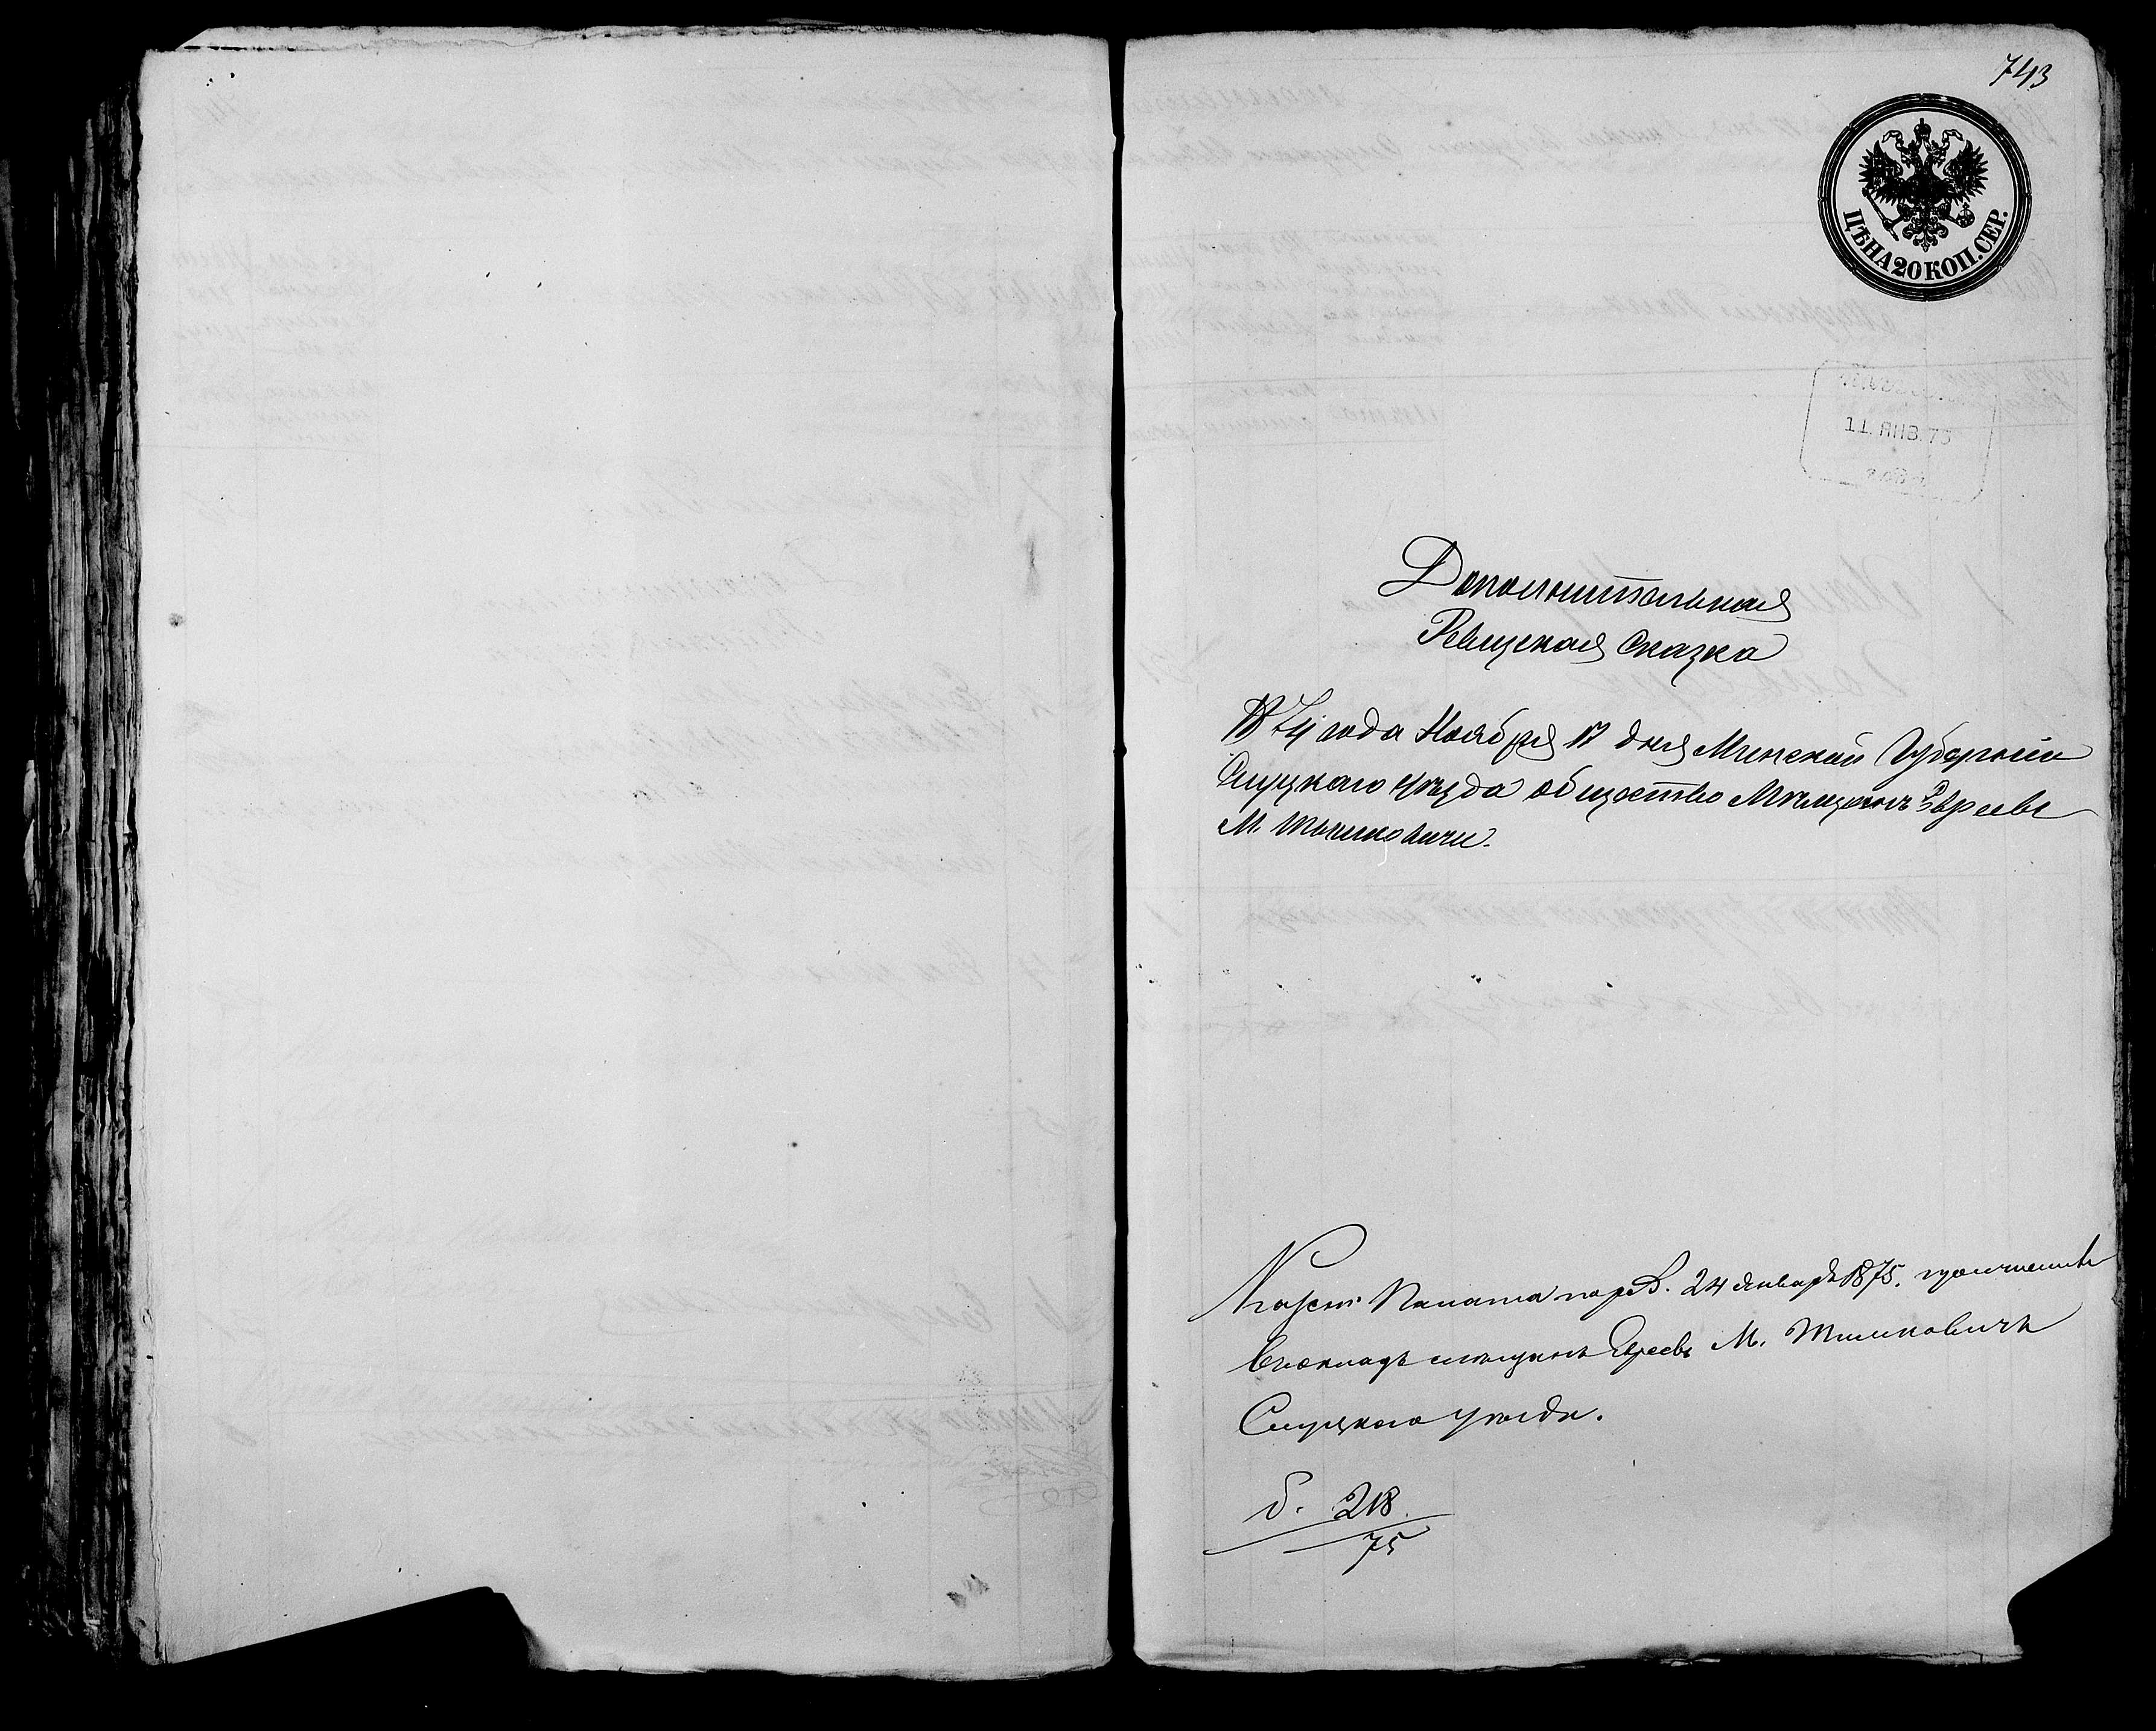 743
ЦѢНА 20 КОП. СЕР.
11. ЯНВ. 75
Дополнительная
Ревизская Сказка
1874 года Ноября 17 дня Минской Губернии
Слуцкаго уѣзда общество Мѣщанъ Евреевъ
М. Тимковичи.
Палата 24 Января 1875.
въ окладъ мѣщанъ Евреевъ М. Тимковичъ
Слуцкаго уѣзда.
б. 218.
75